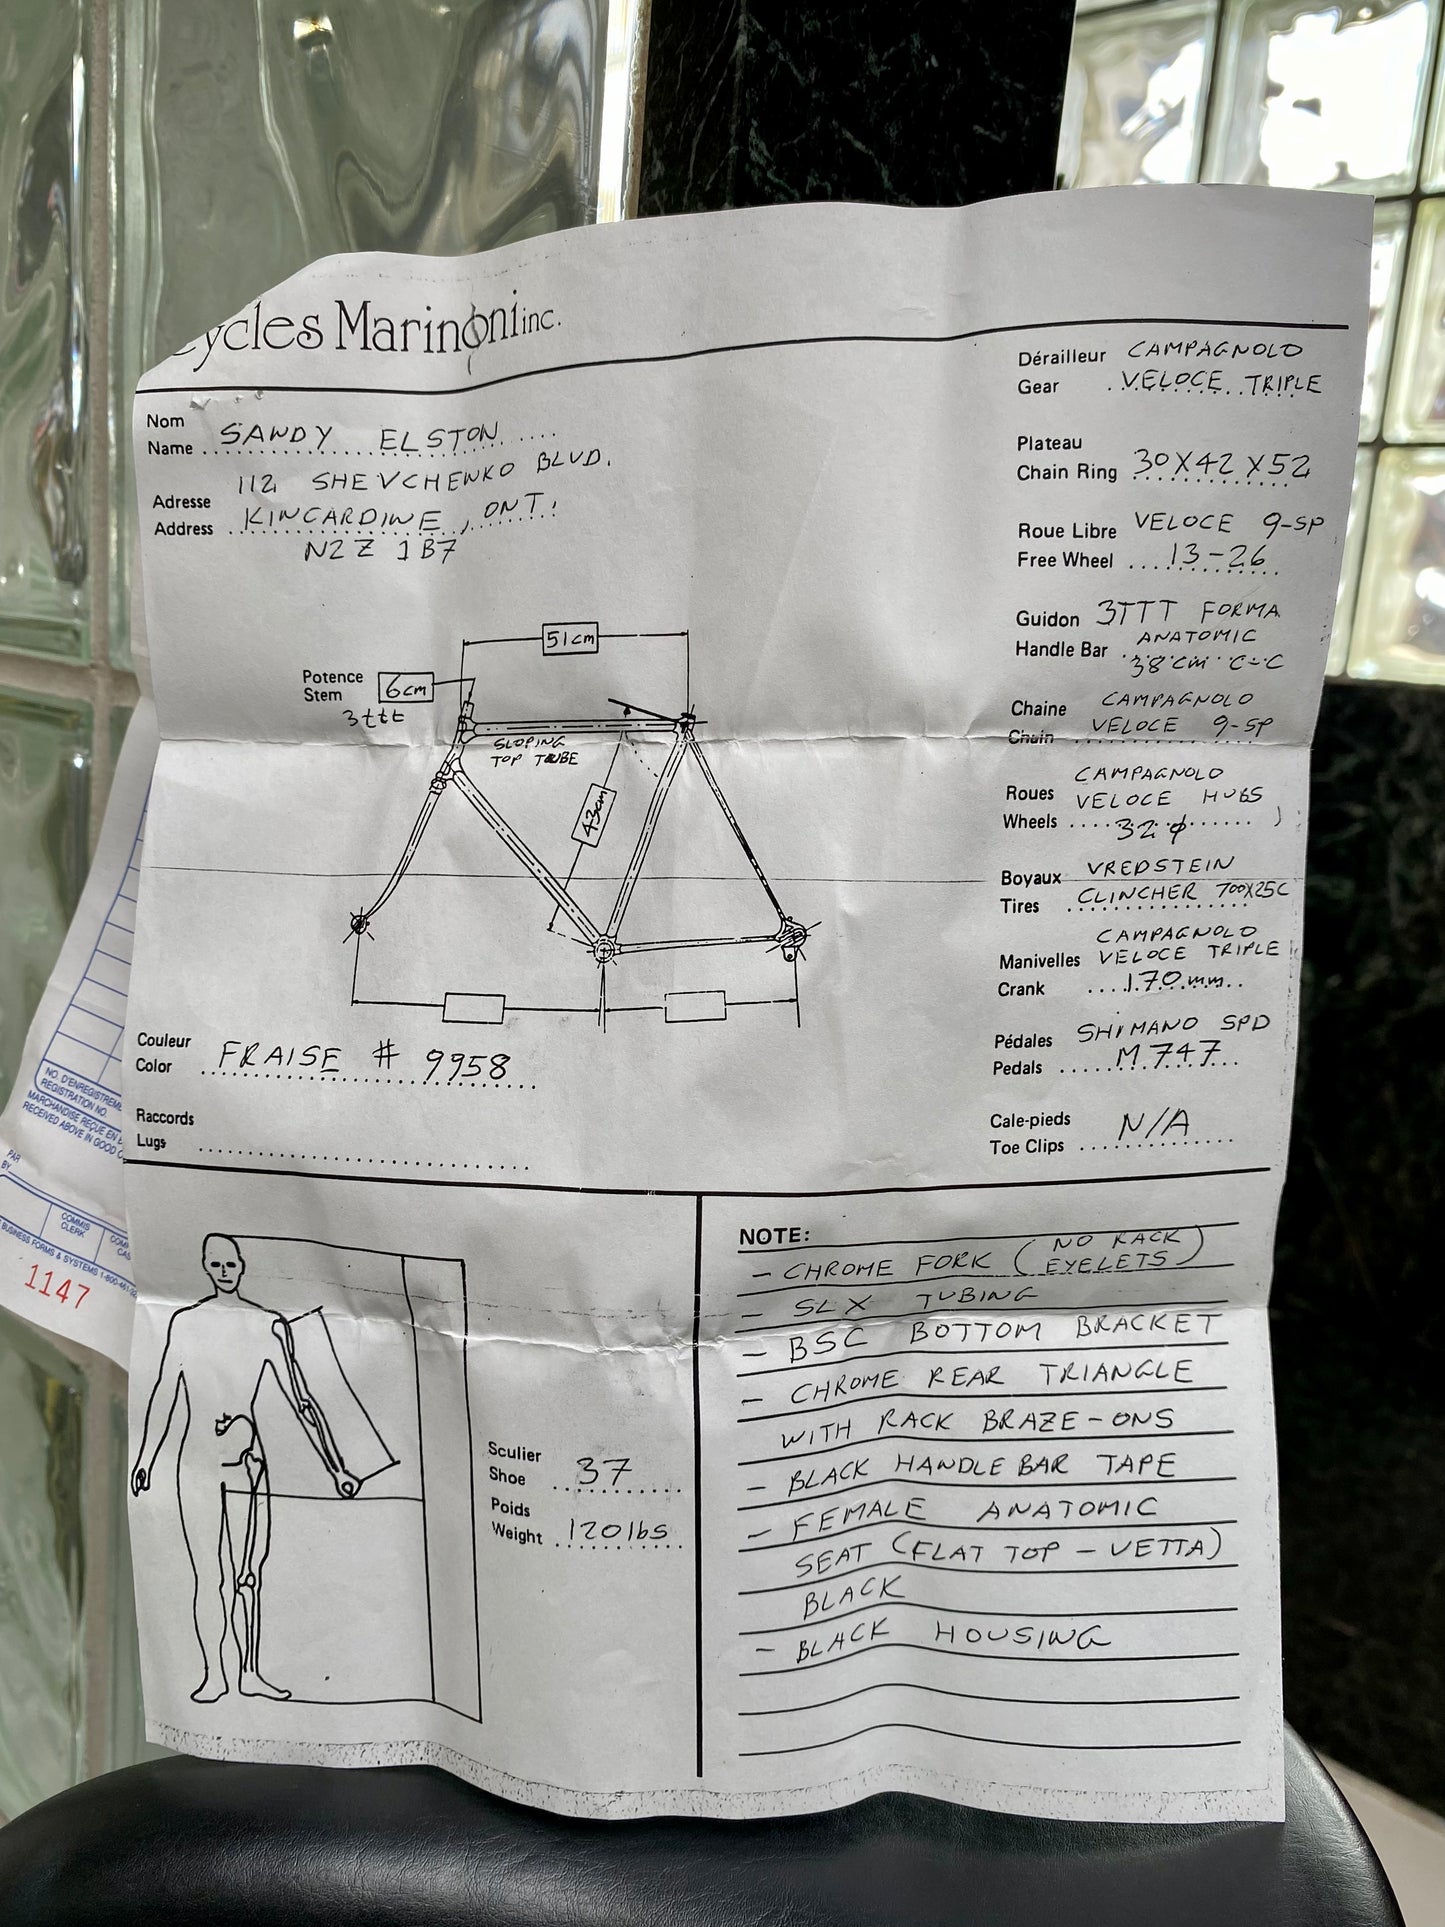 Cycles Marinoni inc.
Nom
Name SANDY ELSTON
112 SHEVCHENKO BLVD.
Adresse
Address KINCARDINE, ONT.
N2Z 1B7
51cm
Potence
Stem 6cm
3ttt
SLOPING
TOP TUBE
43cm
Couleur
Color FRAISE # 9958
Raccords
Lugs
Dérailleur CAMPAGNOLO
Gear VELOCE TRIPLE
Plateau
Chain Ring 30X42X52
Roue Libre VELOCE 9-SP
Free Wheel 13-26
Guidon 3TTT FORMA
Handle Bar ANATOMIC
38cm C-C
Chaine CAMPAGNOLO
Chain VELOCE 9-SP
CAMPAGNOLO
Roues VELOCE HUBS
Wheels 32
Boyaux VREDSTEIN
Tires CLINCHER 700X25C
CAMPAGNOLO
Manivelles VELOCE TRIPLE
Crank 170mm
Pédales SHIMANO SPD
Pedals M747
Cale-pieds
Toe Clips N/A
Sculier
Shoe 37
Poids
Weight 120lbs
NOTE:
- CHROME FORK (NO RACK
EYELETS)
- SLX TUBING
- BSC BOTTOM BRACKET
- CHROME REAR TRIANGLE
WITH RACK BRAZE-ONS
- BLACK HANDLEBAR TAPE
- FEMALE ANATOMIC
SEAT (FLAT TOP - VETTA)
BLACK
- BLACK HOUSING
NO. D'ENREGISTREME
REGISTRATION NO.
MARCHANDISE REÇUE EN
RECEIVED ABOVE IN GOOD
PAR
BY
COMMIS
CLERK
BUSINESS FORMS & SYSTEMS
1147